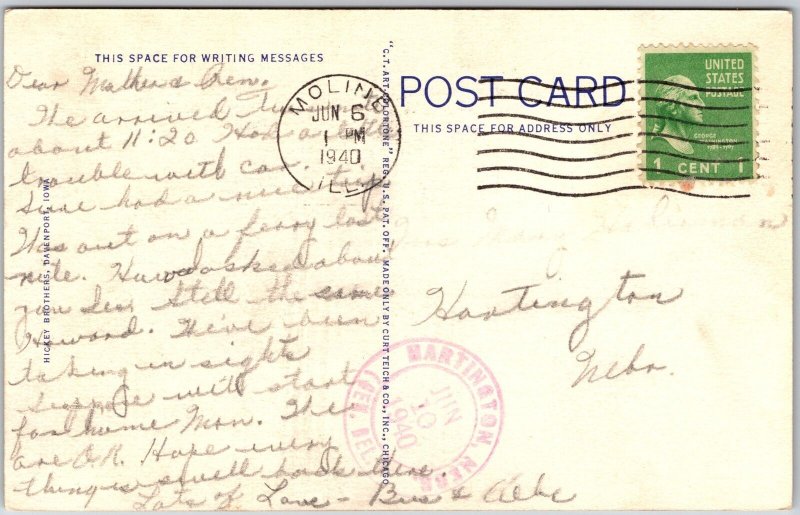 THIS SPACE FOR WRITING MESSAGES
Dear Mother &
We arrived
about 11:20 Had a little
trouble with car.
Sure had a nice trip
Was out on a ferry last
nite. Howard asked about
you Geo. Still the same
Howard. We've been
taking in sights
Suppose will start
for home Mon. We
are O.K. Hope every
thing is well back there.
Lots of Love - Bus & Celie
HICKEY BROTHERS, DAVENPORT, IOWA
"C.T. ART-COLORTONE" REG. U.S. PAT. OFF. MADE ONLY BY CURT TEICH & CO., INC., CHICAGO
MOLINE
JUN 6
1 PM
1940
ILL.
POST CARD
THIS SPACE FOR ADDRESS ONLY
UNITED
STATES
POSTAGE
GEORGE
WASHINGTON
1 CENT 1
Mrs.
Hartington
Nebr.
HARTINGTON, NEBR.
JUN
10
1940